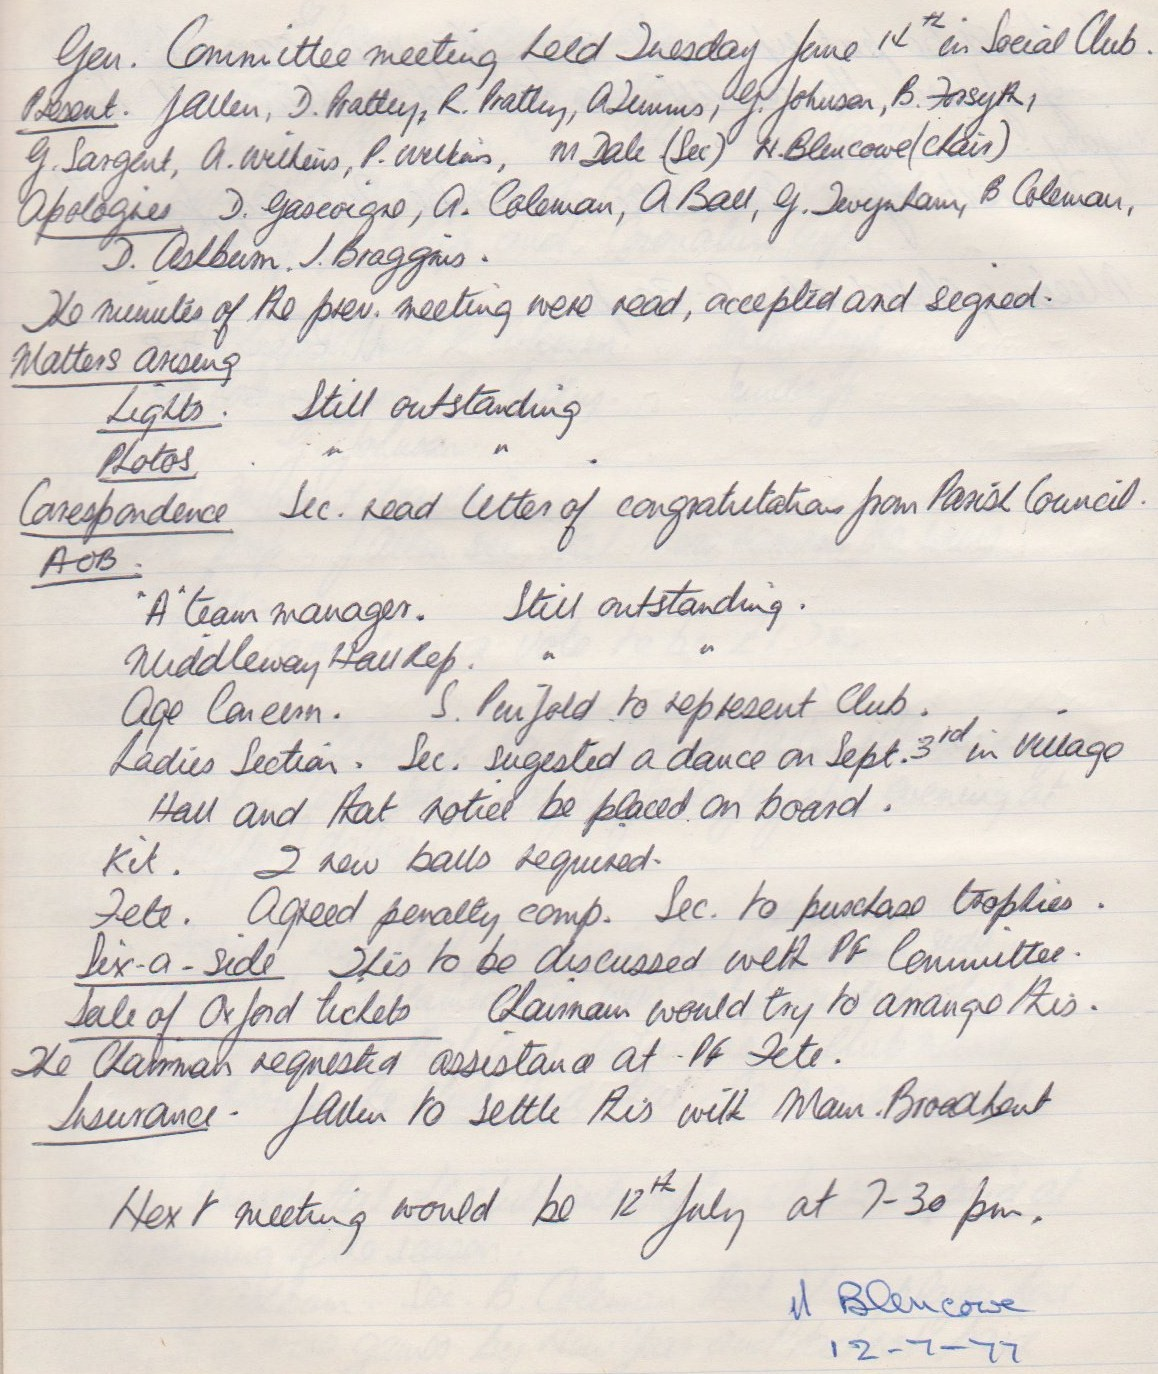 Gen. Committee meeting held Tuesday June 14th in Social Club.
Present. J Allen, D. Pratley, R. Pratley, A Timms, G. Johnson, B. Forsyth,
G. Sargent, A. Wilkins, P. Wilkins, M Dale (Sec) N. Blencowe (Chair)
Apologies D. Gascoigne, A. Coleman, A Ball, G. Twynham, B Coleman,
D. Ashburn. J. Braggins.
The minutes of the prev. meeting were read, accepted and signed.
Matters arising
Lights. Still outstanding
Photos. " " .
Correspondence Sec. read letter of congratulations from Parish Council.
AOB.
"A" team manager. Still outstanding.
Middleway Hall Rep. " "
Age Concern. S. Penfold to represent Club.
Ladies Section. Sec. sugested a dance on Sept. 3rd in Village
Hall and that notice be placed on board.
Kit. 2 new balls required.
Fete. Agreed penalty comp. Sec. to purchase trophies.
Six-a-side This to be discussed with PF Committee.
Sale of Oxford tickets Chairman would try to arrange this.
The Chairman requested assistance at PF Fete.
Insurance. J Allen to settle this with Broadbent
Next meeting would be 12th July at 7-30 pm.
N Blencowe
12-7-77